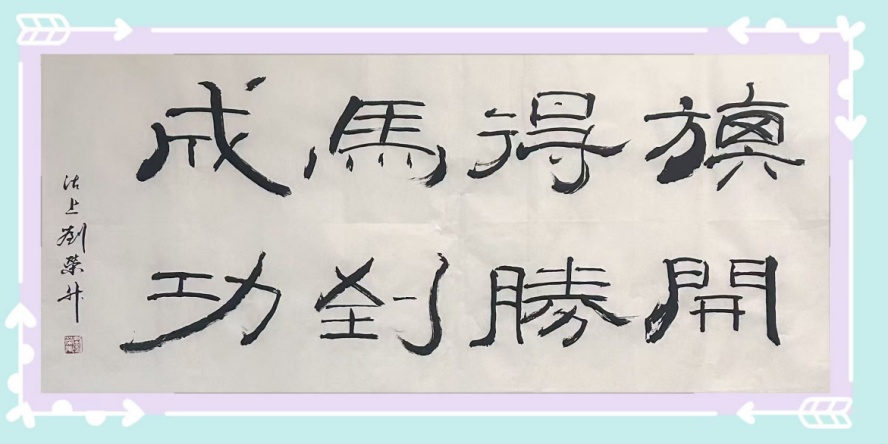 旗開
得勝
馬到
成功
沽上劉榮升